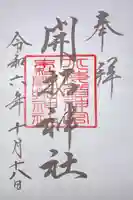 奉拝
開拓神社
令和六年十月十八日